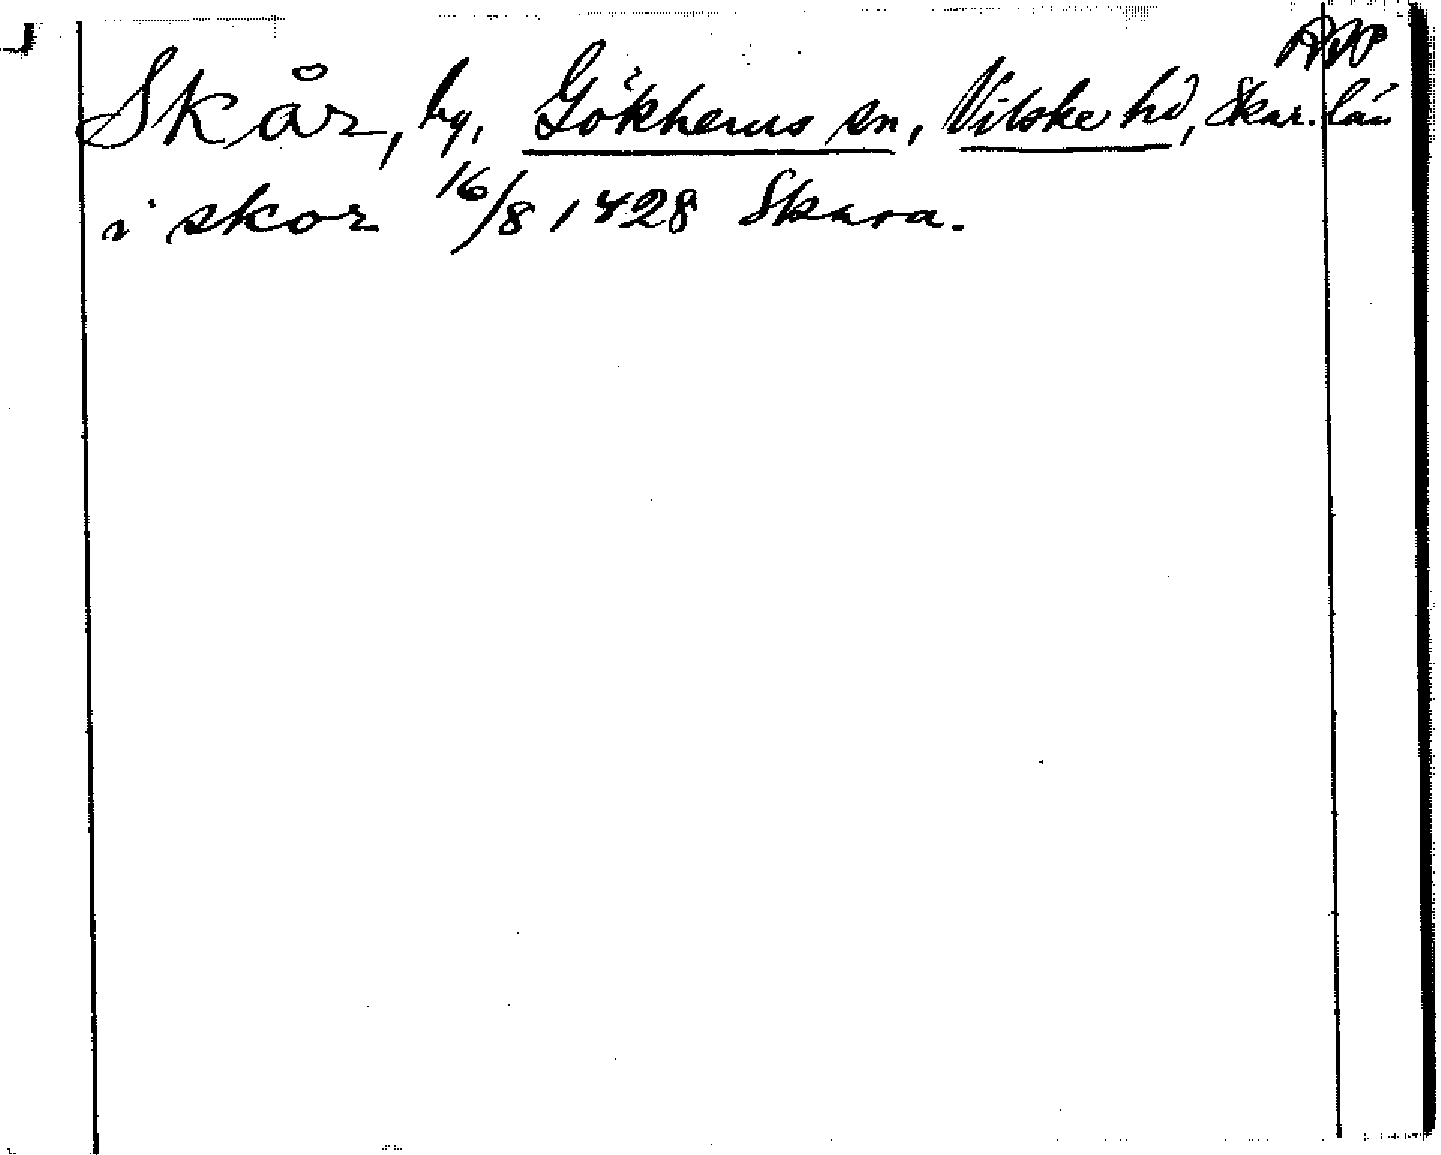 Skår, by, Gökhems sn, Vilske hd, Skar. län
i skor 16/8 1428 Skara.